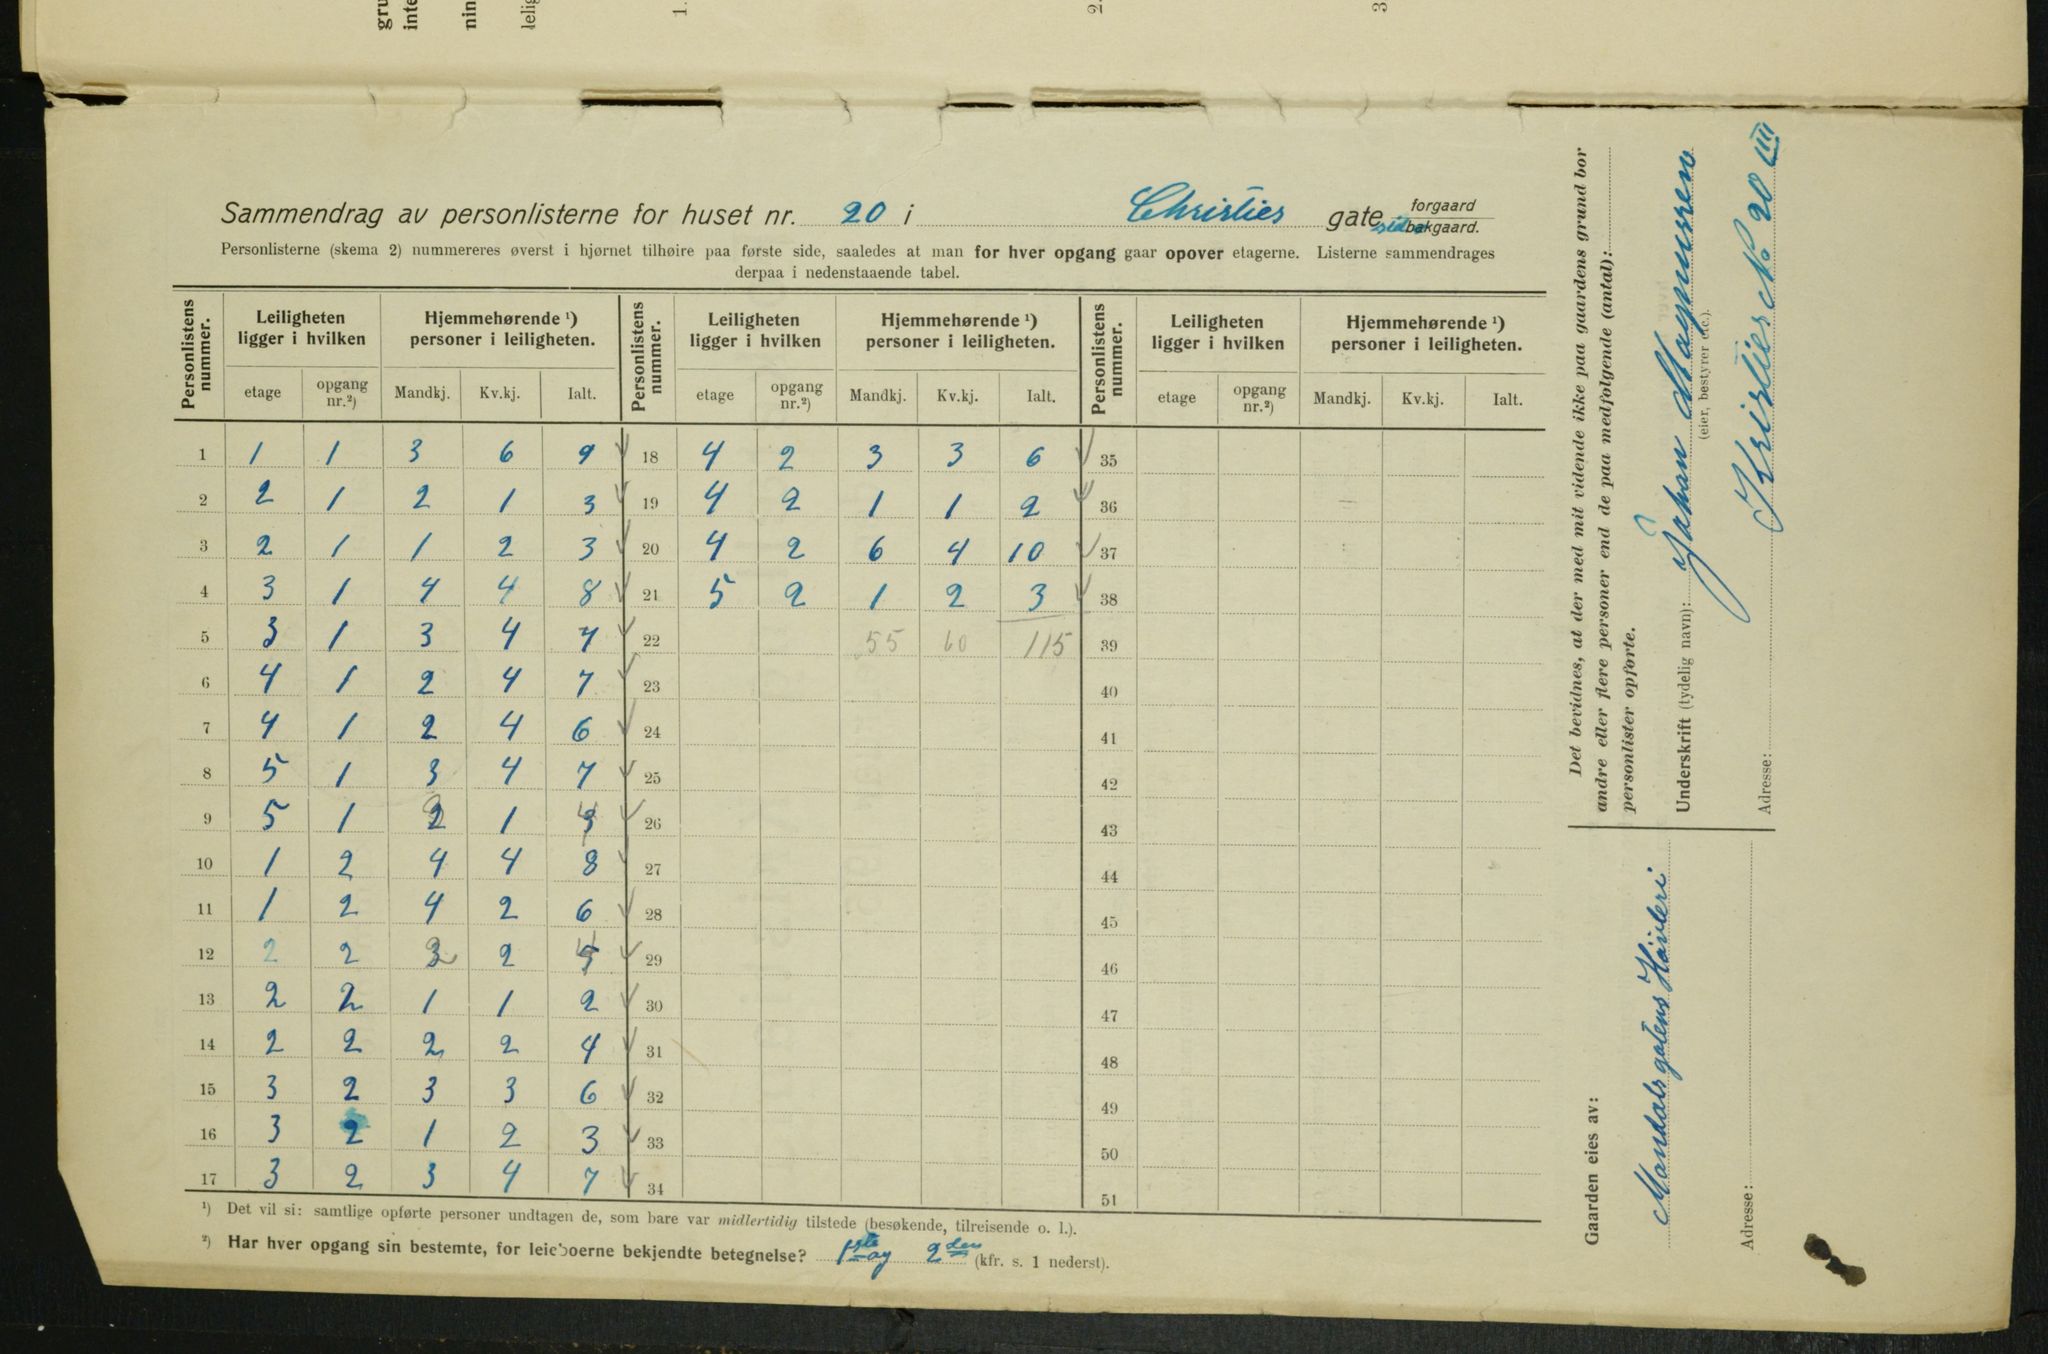 Sammendrag av personlisterne for huset nr. 20 i Christies gate forgaard
side bakgaard.
Personlisterne (skema 2) nummereres øverst i hjørnet tilhøire paa første side, saaledes at man for hver opgang gaar opover etagerne. Listerne sammendrages
derpaa i nedenstaaende tabel.
Personlistens nummer. Leiligheten ligger i hvilken Hjemmehørende ¹) personer i leiligheten. Personlistens nummer. Leiligheten ligger i hvilken Hjemmehørende ¹) personer i leiligheten. Personlistens nummer. Leiligheten ligger i hvilken Hjemmehørende ¹) personer i leiligheten.
etage opgang nr.²) Mandkj. Kv.kj. Ialt. etage opgang nr.²) Mandkj. Kv.kj. Ialt. etage opgang nr.²) Mandkj. Kv.kj. Ialt.
1 1 1 3 6 9 18 4 2 3 3 6 35
2 2 1 2 1 3 19 4 2 1 1 2 36
3 2 1 1 2 3 20 4 2 6 4 10 37
4 3 1 4 4 8 21 5 2 1 2 3 38
5 3 1 3 4 7 22 55 60 115 39
6 4 1 2 4 7 23 40
7 4 1 2 4 6 24 41
8 5 1 3 4 7 25 42
9 5 1 1 26 43
10 1 2 4 4 8 27 44
11 1 2 4 2 6 28 45
12 2 2 2 29 46
13 2 2 1 1 2 30 47
14 2 2 2 2 4 31 48
15 3 2 3 3 6 32 49
16 3 2 1 2 3 33 50
17 3 2 3 4 7 34 51
¹) Det vil si: samtlige opførte personer undtagen de, som bare var midlertidig tilstede (besøkende, tilreisende o. l.).
²) Har hver opgang sin bestemte, for leieboerne bekjendte betegnelse? 1ste og 2den (kfr. s. 1 nederst).
Det bevidnes, at der med mit vidende ikke paa gaardens grund bor
andre eller flere personer end de paa medfølgende (antal):
personlister opførte.
Underskrift (tydelig navn): Johan Magnussen
(eier, bestyrer etc.).
Adresse: Kristies No 20 III
Gaarden eies av:
Mandalsgatens
Adresse: